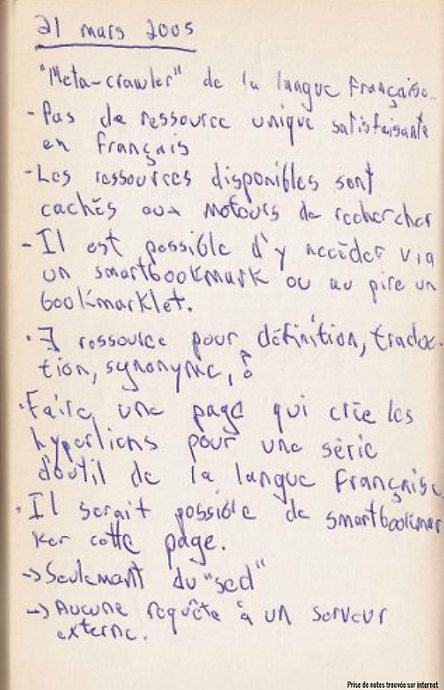 21 mars 2005
"Meta-crawler" de la langue Française.
- Pas de ressource unique satisfaisante
en français
- Les ressources disponibles sont
cachés aux moteurs de rechercher
- Il est possible d'y accéder via
un smartbookmark ou au pire un
bookmarklet.
· ∃ ressource pour définition, traduc-
tion, synonyme,
· Faire une page qui crée les
hyperliens pour une série
d'outil de la langue Française
· Il serait possible de smartbookmar
ker cette page.
-> Seulemant du "sed"
-> Aucune requête à un serveur
externe.
Prise de notes trouvée sur internet